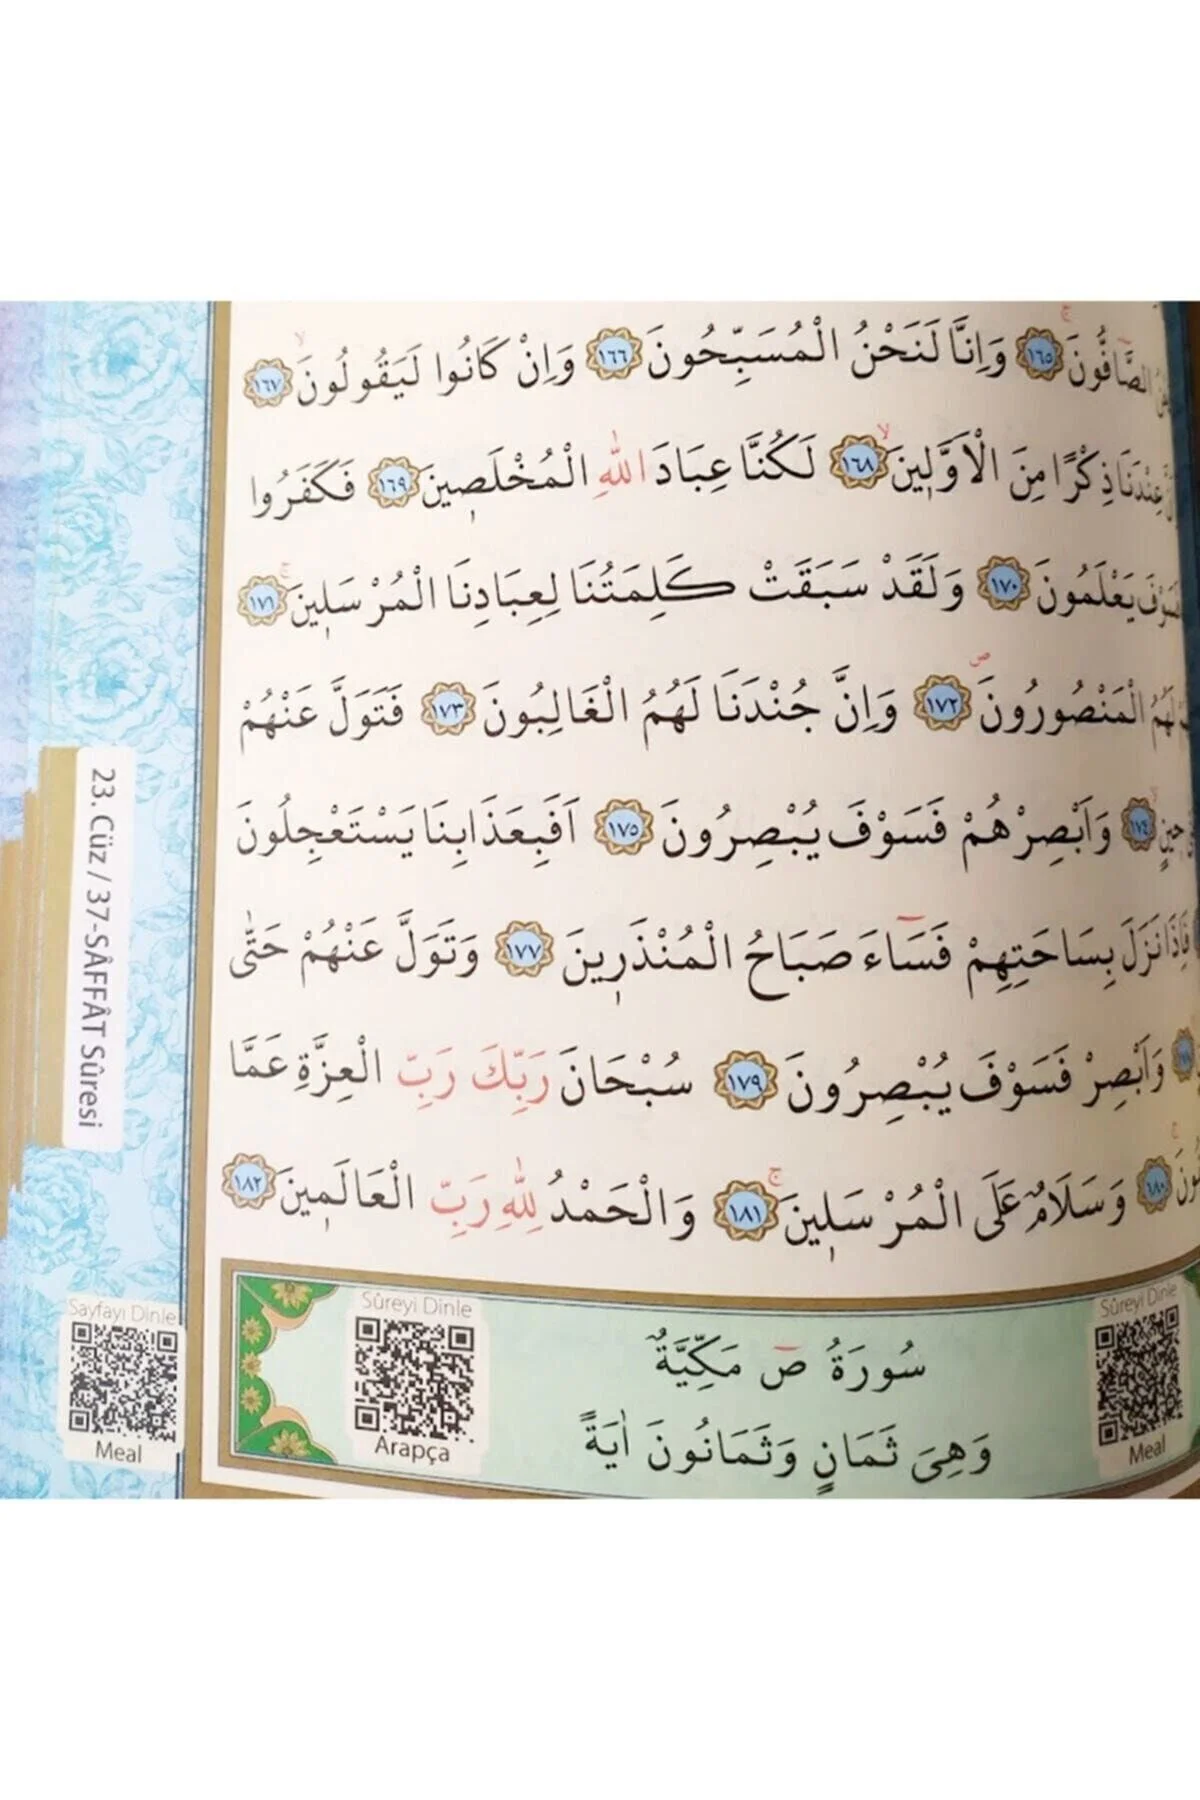 الصَّٓافُّونَۚ ١٦٥ وَاِنَّا لَنَحْنُ الْمُسَبِّحُونَ ١٦٦ وَاِنْ كَانُوا لَيَقُولُونَۙ ١٦٧
عِنْدَنَا ذِكْرًا مِنَ الْاَوَّلٖينَۙ ١٦٨ لَكُنَّا عِبَادَ اللّٰهِ الْمُخْلَصٖينَ ١٦٩ فَكَفَرُوا
يَعْلَمُونَ ١٧٠ وَلَقَدْ سَبَقَتْ كَلِمَتُنَا لِعِبَادِنَا الْمُرْسَلٖينَۚ ١٧١
لَهُمُ الْمَنْصُورُونَۖ ١٧٢ وَاِنَّ جُنْدَنَا لَهُمُ الْغَالِبُونَ ١٧٣ فَتَوَلَّ عَنْهُمْ
حٖينٍۙ ١٧٤ وَاَبْصِرْهُمْ فَسَوْفَ يُبْصِرُونَ ١٧٥ اَفَبِعَذَابِنَا يَسْتَعْجِلُونَ
فَاِذَا نَزَلَ بِسَاحَتِهِمْ فَسَٓاءَ صَبَاحُ الْمُنْذَرٖينَ ١٧٧ وَتَوَلَّ عَنْهُمْ حَتّٰى
١٧٨ وَاَبْصِرْ فَسَوْفَ يُبْصِرُونَ ١٧٩ سُبْحَانَ رَبِّكَ رَبِّ الْعِزَّةِ عَمَّا
١٨٠ وَسَلَامٌ عَلَى الْمُرْسَلٖينَۚ ١٨١ وَالْحَمْدُ لِلّٰهِ رَبِّ الْعَالَمٖينَ ١٨٢
سُورَةُ صٓ مَكِّيَّةٌ
وَهِيَ ثَمَانٍ وَثَمَانُونَ اٰيَةً
Sûreyi Dinle
Arapça
Sûreyi Dinle
Meal
Sayfayı Dinle
Meal
23. Cüz / 37-SÂFFÂT Sûresi